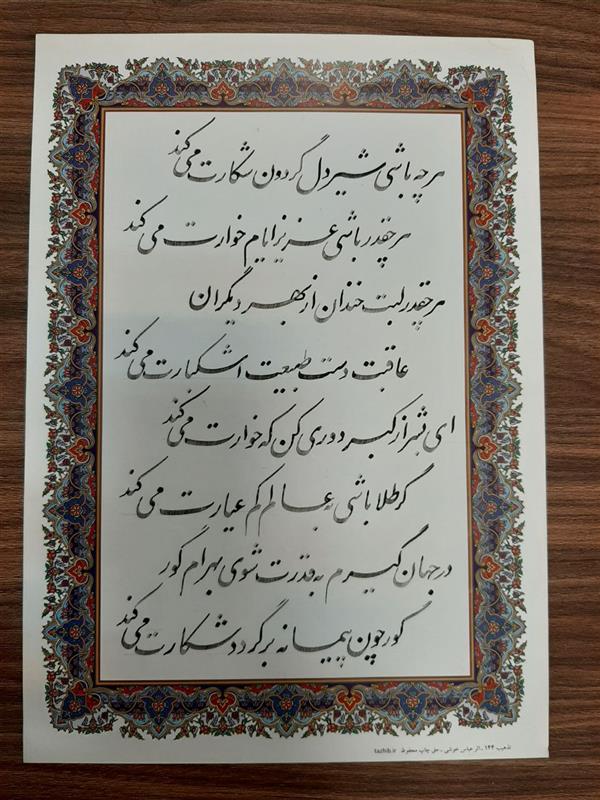 هر چه باشی شیر دل گردون شکارت می کند
هر چقدر باشی عزیز ایام خوارت می کند
هر چقدر لبت خندان از بهر دیگران
عاقبت دست طبیعت اشکبارت می کند
ای بشر از کبر دوری کن که خوارت می کند
گر طلا باشی به عالم کم عیارت می کند
در جهان گیرم به قدرت شوی بهرام گور
گور چون پیمانه برگردد شکارت می کند
تذهیب ۱۴۴ ـ اثر عباس خوشی ـ حق چاپ محفوظ tazhib.ir